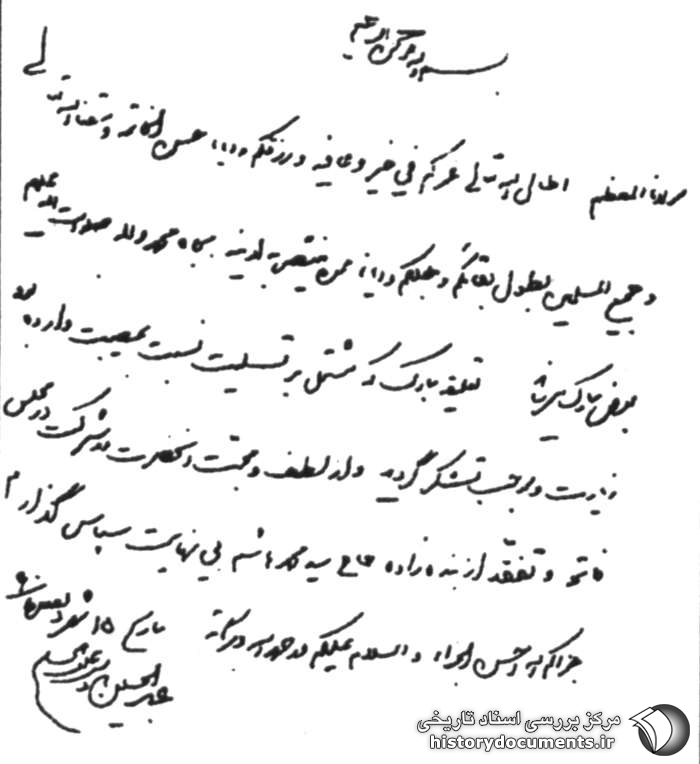 بسم الله الرحمن الرحیم
مولانا المعظم اطال الله تعالی عمرکم فی خیر و عافیه و رزقکم و ایانا حسن الخاتمه و متعنا الله تعالی
و جمیع المسلمین بطول بقائکم و جعلکم و ایانا ممن ینتصر به لدینه بجاه محمد و آله صلوات الله علیهم
بعرض مبارک میرساند تعلیقه مبارک که مشتمل بر تسلیت نسبت بمصیبت وارده بود
زیارت و موجب تشکر گردید و از لطف و محبت آنحضرت در شرکت در مجلس
فاتحه و تفقد از بنده زاده حاج سید محمد هاشم بی نهایت سپاس گذارم
جزاکم الله احسن الجزاء و السلام علیکم و رحمة الله و برکاته
بتاریخ ۱۵ شهر
عبدالحسین
مرکز بررسی اسناد تاریخی
historydocuments.ir